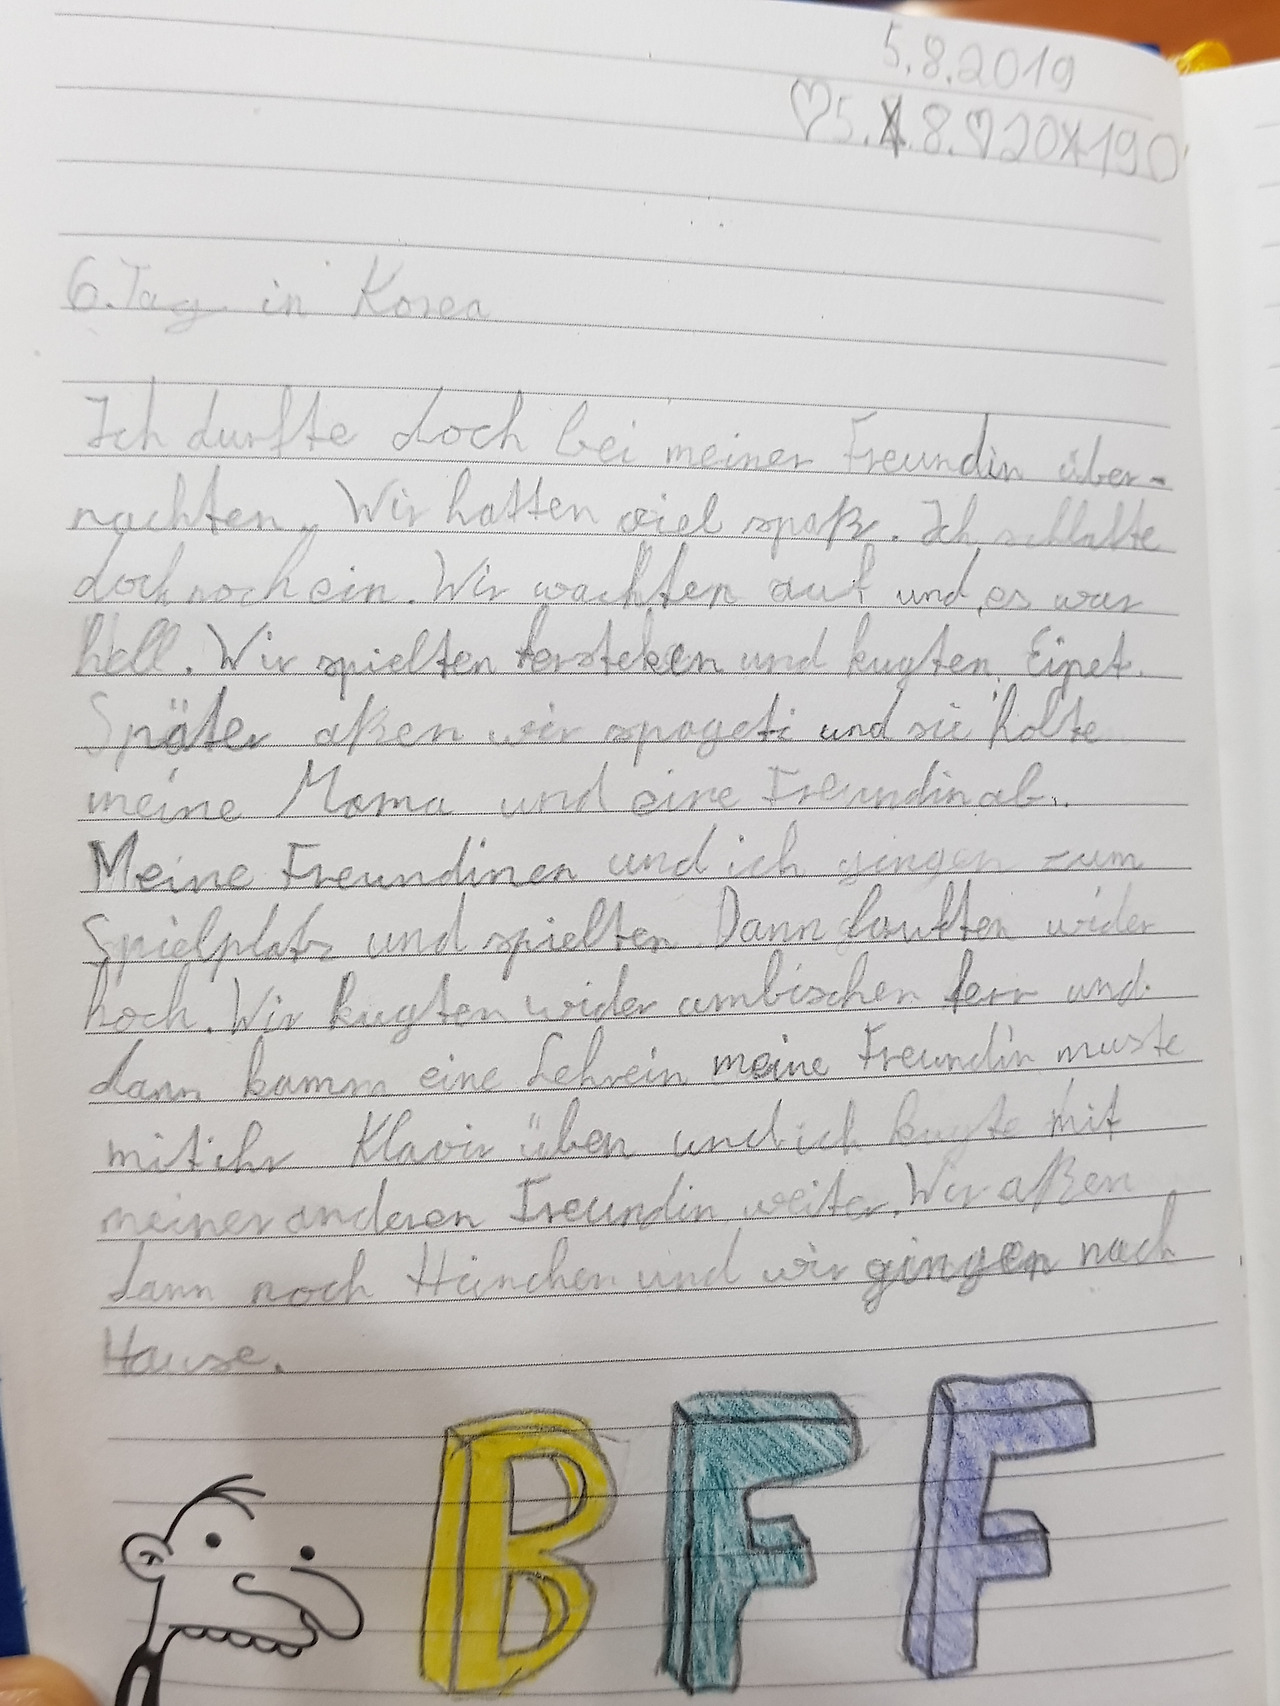 5.8.2019
♡5.☆8.♡20☆19○
6. Tag in Korea
Ich durfte doch bei meiner Freundin über-
nachten. Wir hatten viel spaß. Ich schlafte
doch noch ein. Wir wachten auf und es war
hell. Wir spielten fersteken und kugten
Später aßen wir spageti und sie holte
meine Mama und eine Freundin ab.
Meine Freundinen und ich gingen zum
Spielplatz und spielten Dann lauften wider
hoch. Wir kugten wider ambischen fern und
dann kamm eine Lehrein meine Freundin muste
mit ihr Klavir üben und ich kugte mit
meiner anderen Freundin weiter. Wir aßen
dann noch Hünchen und wir gingen nach
Hause.
BFF